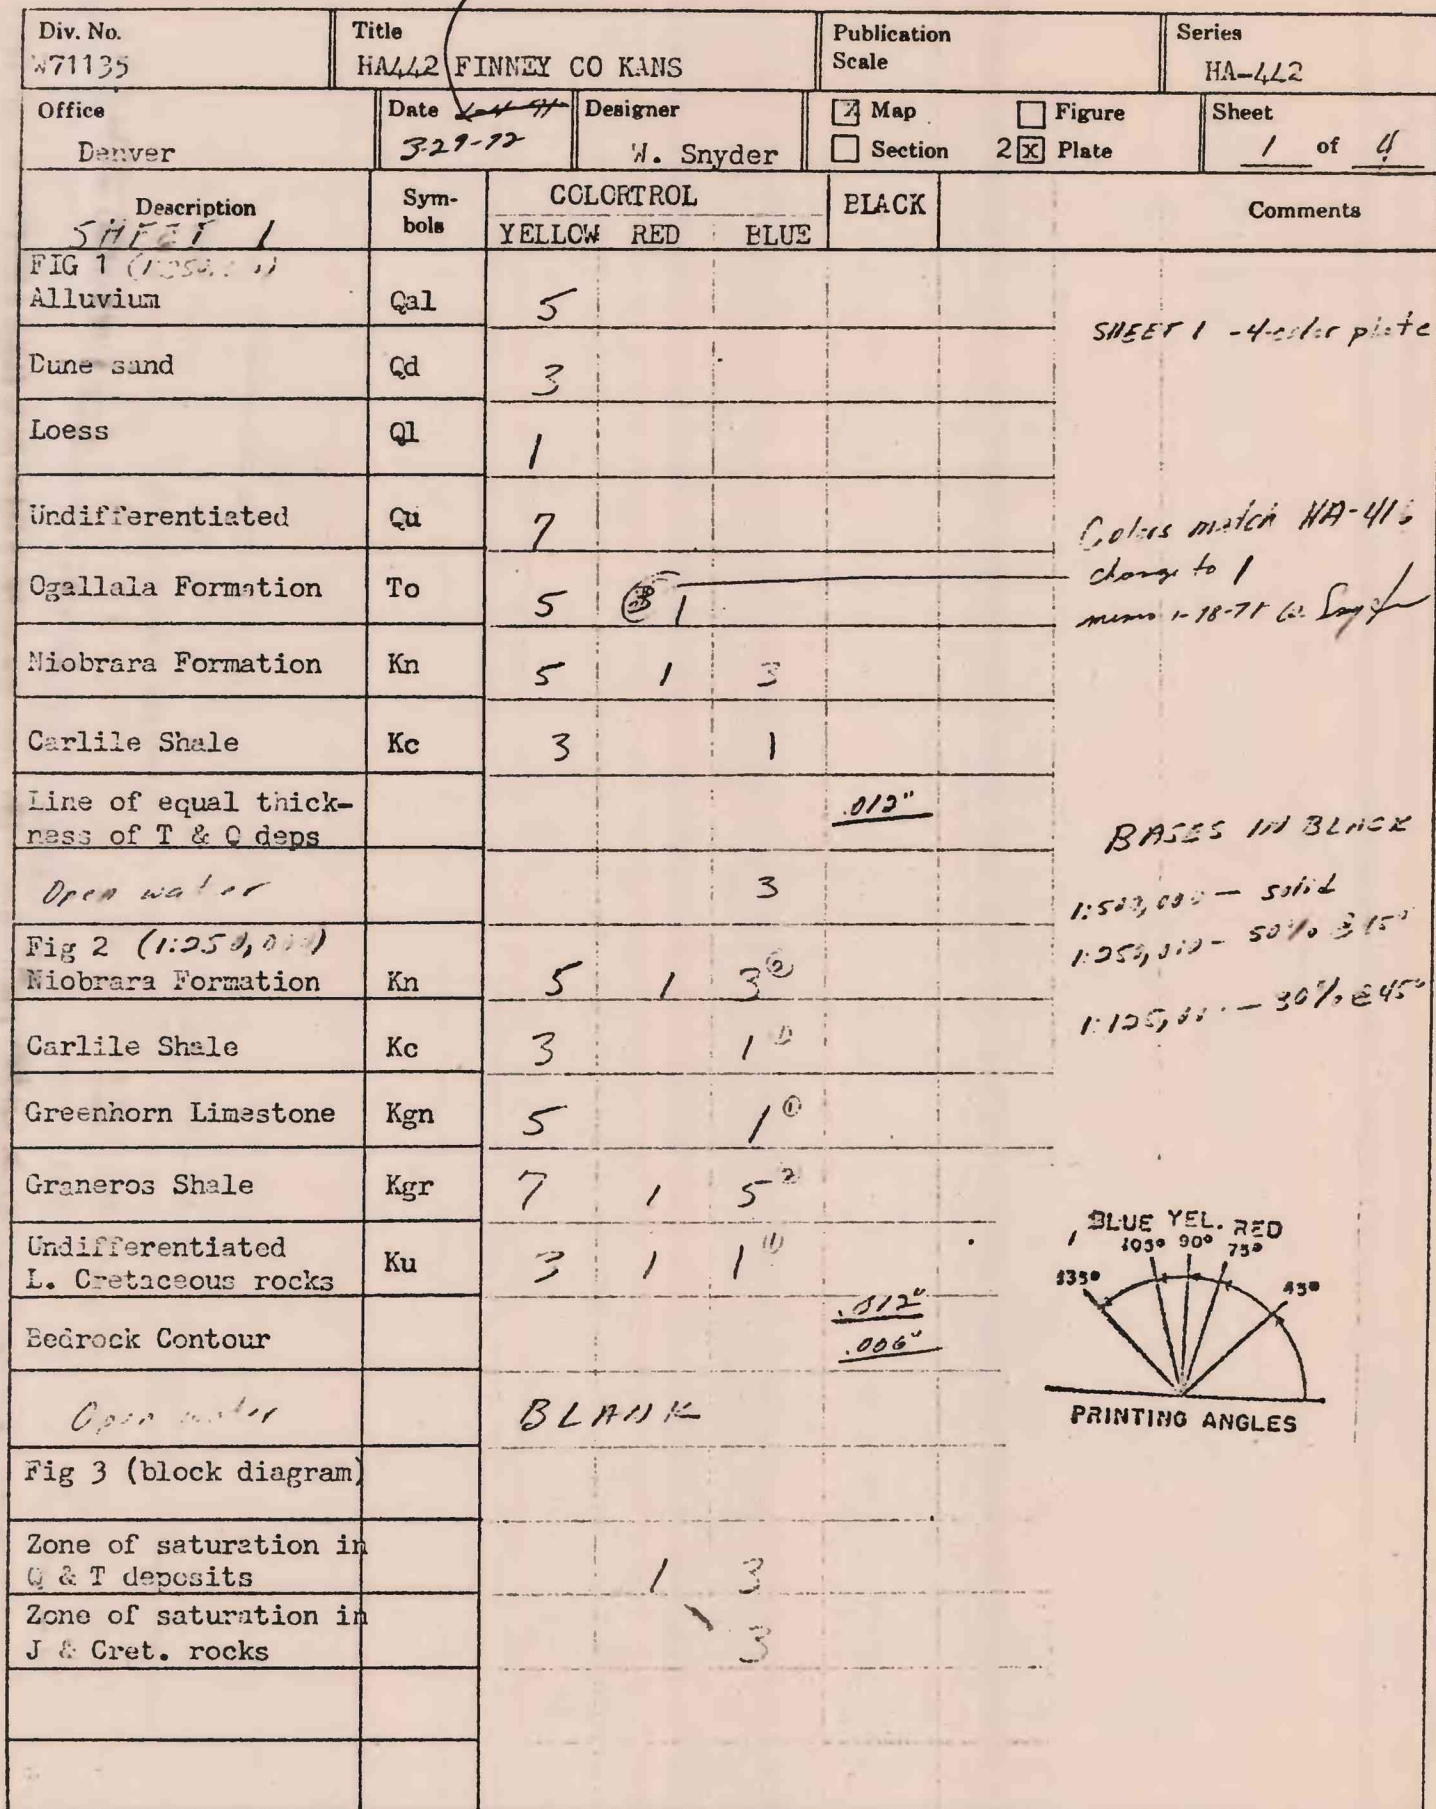 Div. No.
W71135
Title
HA442 FINNEY CO KANS
Publication
Scale
Series
HA-442
Office
Denver
Date
3-29-72
Designer
W. Snyder
X Map
Figure
Section
2 X Plate
Sheet
1 of 4
Description
SHEET 1
Sym-
bols
COLORTROL
YELLOW RED BLUE
BLACK
Comments
FIG 1
Alluvium Qal 5
SHEET 1 - 4-color plate
Dune sand Qd 3
Loess Ql 1
Undifferentiated Qu 7
Colors match HA-41
Ogallala Formation To 5 1
change to 1
memo
Niobrara Formation Kn 5 1 3
Carlile Shale Kc 3 1
Line of equal thick-
ness of T & Q deps
.012"
BASES IN BLACK
Open water 3
1:500,000 — solid
Fig 2 (1:250,000)
1:250,000 - 50% @ 15°
Niobrara Formation Kn 5 1 3 ②
1:125,000 — 30% @ 45°
Carlile Shale Kc 3 1 ①
Greenhorn Limestone Kgn 5 1 ①
Graneros Shale Kgr 7 1 5 ②
Undifferentiated
L. Cretaceous rocks
Ku 3 1 1 ①
BLUE YEL. RED
105° 90° 75°
135° 45°
PRINTING ANGLES
Bedrock Contour
.012"
.006"
Open water BLANK
Fig 3 (block diagram)
Zone of saturation in
Q & T deposits 1 3
Zone of saturation in
J & Cret. rocks 3